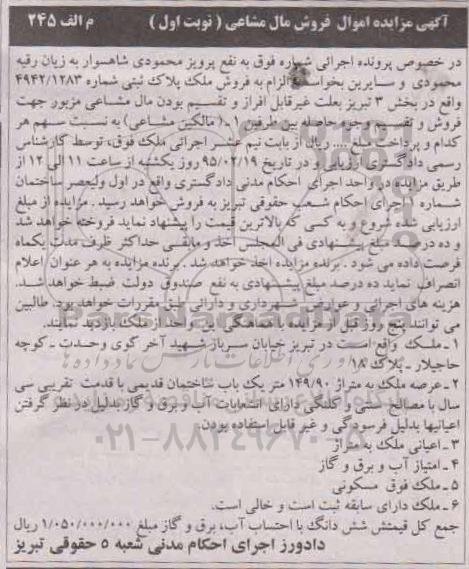 آگهی مزایده اموال فروش مال مشاعی ( نوبت اول ) م الف ۲۴۵
در خصوص پرونده اجرائی شماره فوق به نفع پرویز محمودی شاهسوار به زیان رقیه
محمودی و سایرین بخواسته الزام به فروش ملک پلاک ثبتی شماره ۴۹۴۲/۱۲۸۳
واقع در بخش ۳ تبریز بعلت غیرقابل افراز و تقسیم بودن مال مشاعی مزبور جهت
فروش و تقسیم وجوه حاصله بین طرفین ۱-( مالکین مشاعی) به نسبت سهم هر
کدام و پرداخت مبلغ .... ریال از بابت نیم عشر اجرائی ملک فوق، توسط کارشناس
رسمی دادگستری ارزیابی و در تاریخ ۹۵/۰۲/۱۹ روز یکشنبه از ساعت ۱۱ الی ۱۲ از
طریق مزایده در واحد اجرای احکام مدنی دادگستری واقع در اول ولیعصر ساختمان
شماره ۱ اجرای احکام شعب حقوقی تبریز به فروش خواهد رسید. مزایده از مبلغ
ارزیابی شده شروع و به کسی که بالاترین قیمت را پیشنهاد نماید فروخته خواهد شد
و ده درصد مبلغ پیشنهادی فی المجلس اخذ و مابقی حداکثر ظرف مدت یکماه
فرصت داده می شود . برنده مزایده اخذ خواهد شد . برنده مزایده به هر عنوان اعلام
انصراف نماید ده درصد مبلغ پیشنهادی به نفع صندوق دولت ضبط خواهد شد.
هزینه های اجرائی و عوارض شهرداری و دارائی طبق مقررات خواهد بود. طالبین
می توانند پنج روز قبل از مزایده با هماهنگی این واحد از ملک بازدید نمایند.
۱-ملک واقع است در تبریز خیابان سرباز شهید آخر کوی وحدت - کوچه
حاجیلار - پلاک ۱۸
۲-عرصه ملک به متراژ ۱۴۹/۹۰ متر یک باب ساختمان قدیمی با قدمت تقریبی سی
سال با مصالح سنتی و کلنگی دارای انشعابات آب و برق و گاز بدلیل در نظر گرفتن
اعیانیها بدلیل فرسودگی و غیر قابل استفاده بودن.
۳-اعیانی ملک به متراژ
۴-امتیاز آب و برق و گاز
۵-ملک فوق مسکونی
۶-ملک دارای سابقه ثبت است و خالی است.
جمع کل قیمتش شش دانگ با احتساب آب، برق و گاز مبلغ ۱/۰۵۰/۰۰۰/۰۰۰ ریال
دادورز اجرای احکام مدنی شعبه ۵ حقوقی تبریز
ParsNamadData
۰۲۱-۸۸۳۴۹۶۷۰-۵